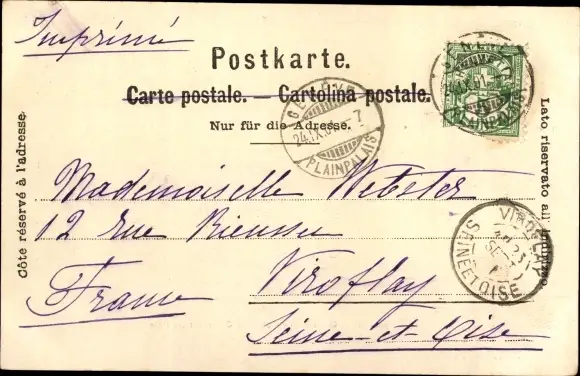 Imprimé
Postkarte.
Carte postale. — Cartolina postale.
Nur für die Adresse.
Côte réservé à l'adresse.
Lato riservato all'
GENÈVE
24.IX.
7
PLAINPALAIS
PLAINPALAIS
Mademoiselle Webster
12 rue Rieussec
Viroflay
France
Seine-et-Oise
VIROFLAY
SEINE ET OISE